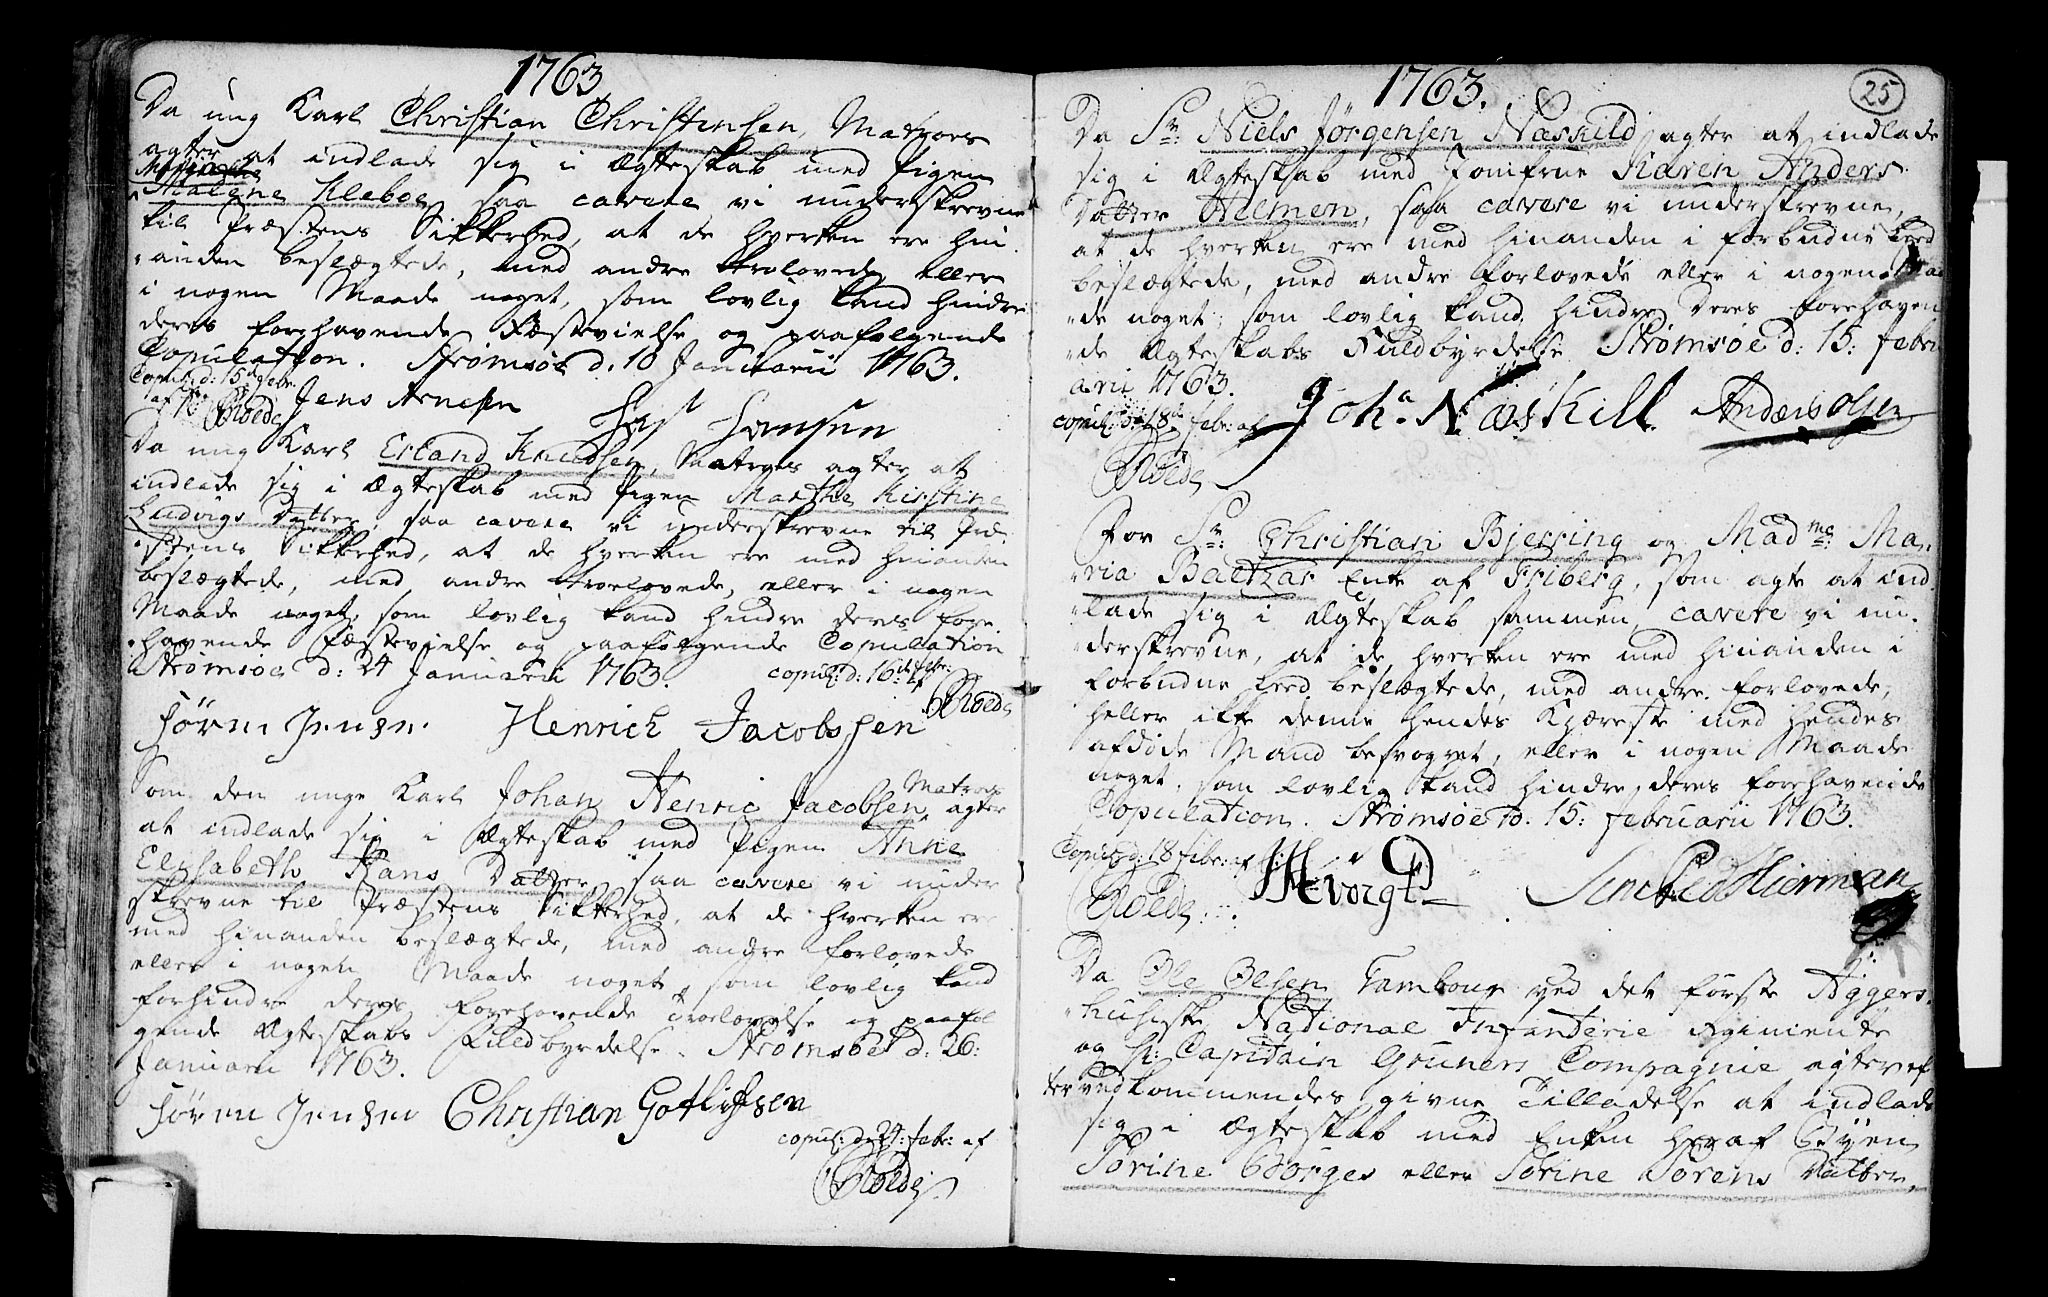 1763
Da ung Karl Christian Christensen, Matros
agter at indlade sig i Ægteskab med Pigen
Malene Kleboe, saa cavere vi underskrevne
til Præstens Sikkerhed, at de hverken ere hin
anden beslægtede, med andre trolovede eller
i nogen Maade noget, som lovlig kand hindre
deres forehavende Fæstevielse og paafølgende
Copulation. Strømsøe d. 10 Januarii 1763.
copul: d: 15 Febr.
af
Jens Arnesen Hansen
Da ung Karl Erland Knudsen, Matros agter at
indlade sig i Ægteskab med Pigen Marthe Kirstine
Ludvigs Datter, saa cavere vi underskrevne til Præ
stens Sikkerhed, at de hverken ere med hinanden
beslægtede, med andre troelovede, eller i nogen
Maade noget, som lovlig kand hindre deres fore
havende Fæstevielse og paafølgende Copulation
Strømsøe d: 24 Januarii 1763. copul: d: 16 febr: af
Søren Jensen Henrich Jacobssen
Som den unge Karl Johan Henric Jacobsen, Matros agter
at indlade sig i Ægteskab med Pigen Anne
Elisabeth Hans Datter, saa cavere vi under
skrevne til Præstens Sikkerhed, at de hverken ere
med hinanden beslægtede, med andre forlovede
eller i nogen Maade noget, som lovlig kand
forhindre deres forehavende Troelovelse og paaføl
gende Ægteskabs Fuldbyrdelse. Strømsøe d: 26:
Januarii 1763.
Søren Jensen Christian Gotlifsen
copul: d: 24: febr: af
1763.
25
Da Sr: Niels Jørgensen Næskild agter at indlade
sig i Ægteskab med Jomfrue Karen Anders
Datter Helmen, saa cavere vi underskrevne,
at de hverken ere med hinanden i forbudne Leed
beslægtede, med andre forlovede eller i nogen Maa
de noget, som lovlig kand hindre deres forehaven
de Ægteskabs Fuldbyrdelse Strømsøe d: 15: Febru
arii 1763.
copul: d: 18 Febr: af
Joh: Næskill Anders Olsen
For Sr: Christian Bjerring og Madme: Ma
ria Baltzar Enke af Friberg, som agte at ind
lade sig i Ægteskab sammen, cavere vi un
derskrevne, at de hverken ere med hinanden i
forbudne Leed beslægtede, med andre forlovede,
heller ikke denne hendes Kjæreste med hendes
afdøde Mand besvogret, eller i nogen Maade
noget, som lovlig kand hindre deres forehavende
Copulation. Strømsøe d. 15: Februarii 1763.
Copul: d: 18 febr: af
Da Ole Olsen Tambour ved det første Aggers
huusiske National Infanterie Regimente
og Hr: Capitain Gruners Compagnie agter ef
ter vedkommendes givne Tilladelse at indlade
sig i Ægteskab med Enken her af Byen
Sørine Børges eller Sørine Sørens Datter,